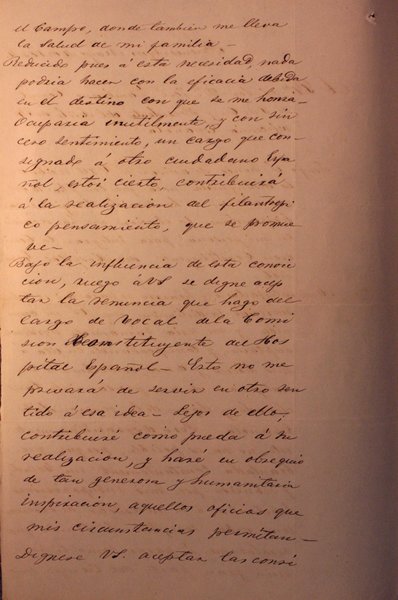 el Campo, donde tambien me lleva
la salud de mi familia –
Reducido pues á esta necesidad, nada
podria hacer con la eficacia debida
en el destino con que se me honra.
Ocuparia inutilmente, y con sin
cero sentimiento, un cargo que con
signado á otro ciudadano Espa
ñol, estoi cierto, contribuirá
á la realizacion del filantropi
co pensamiento, que se promue
ve –
Bajo la influencia de esta convic
cion, ruego á VS. se digne acep
tar la renuncia que hago del
cargo de Vocal de la Comi
sion Constituyente del Hos
pital Español – Esto no me
privará de servir en otro sen
tido á esa idea – Lejos de ello,
contribuiré como pueda á su
realizacion, y haré en obsequio
de tan generosa y humanitaria
inspiracion, aquellos oficios que
mis circunstancias permitan –
Dignese VS. aceptar las consi